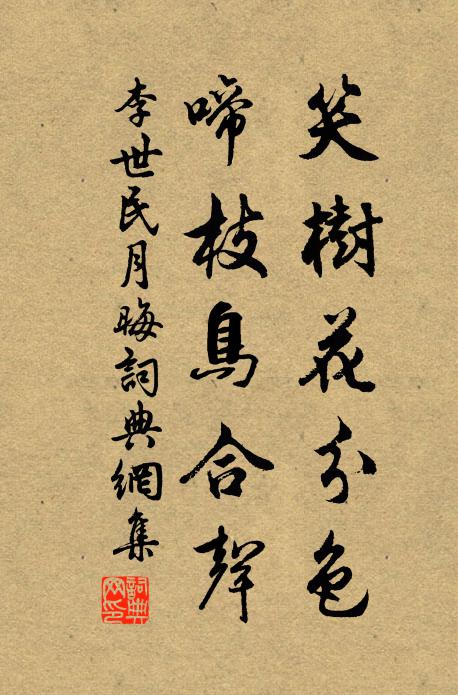 笑樹花分色
啼枝鳥合聲
李世民月晦詞典網集
詞典網印